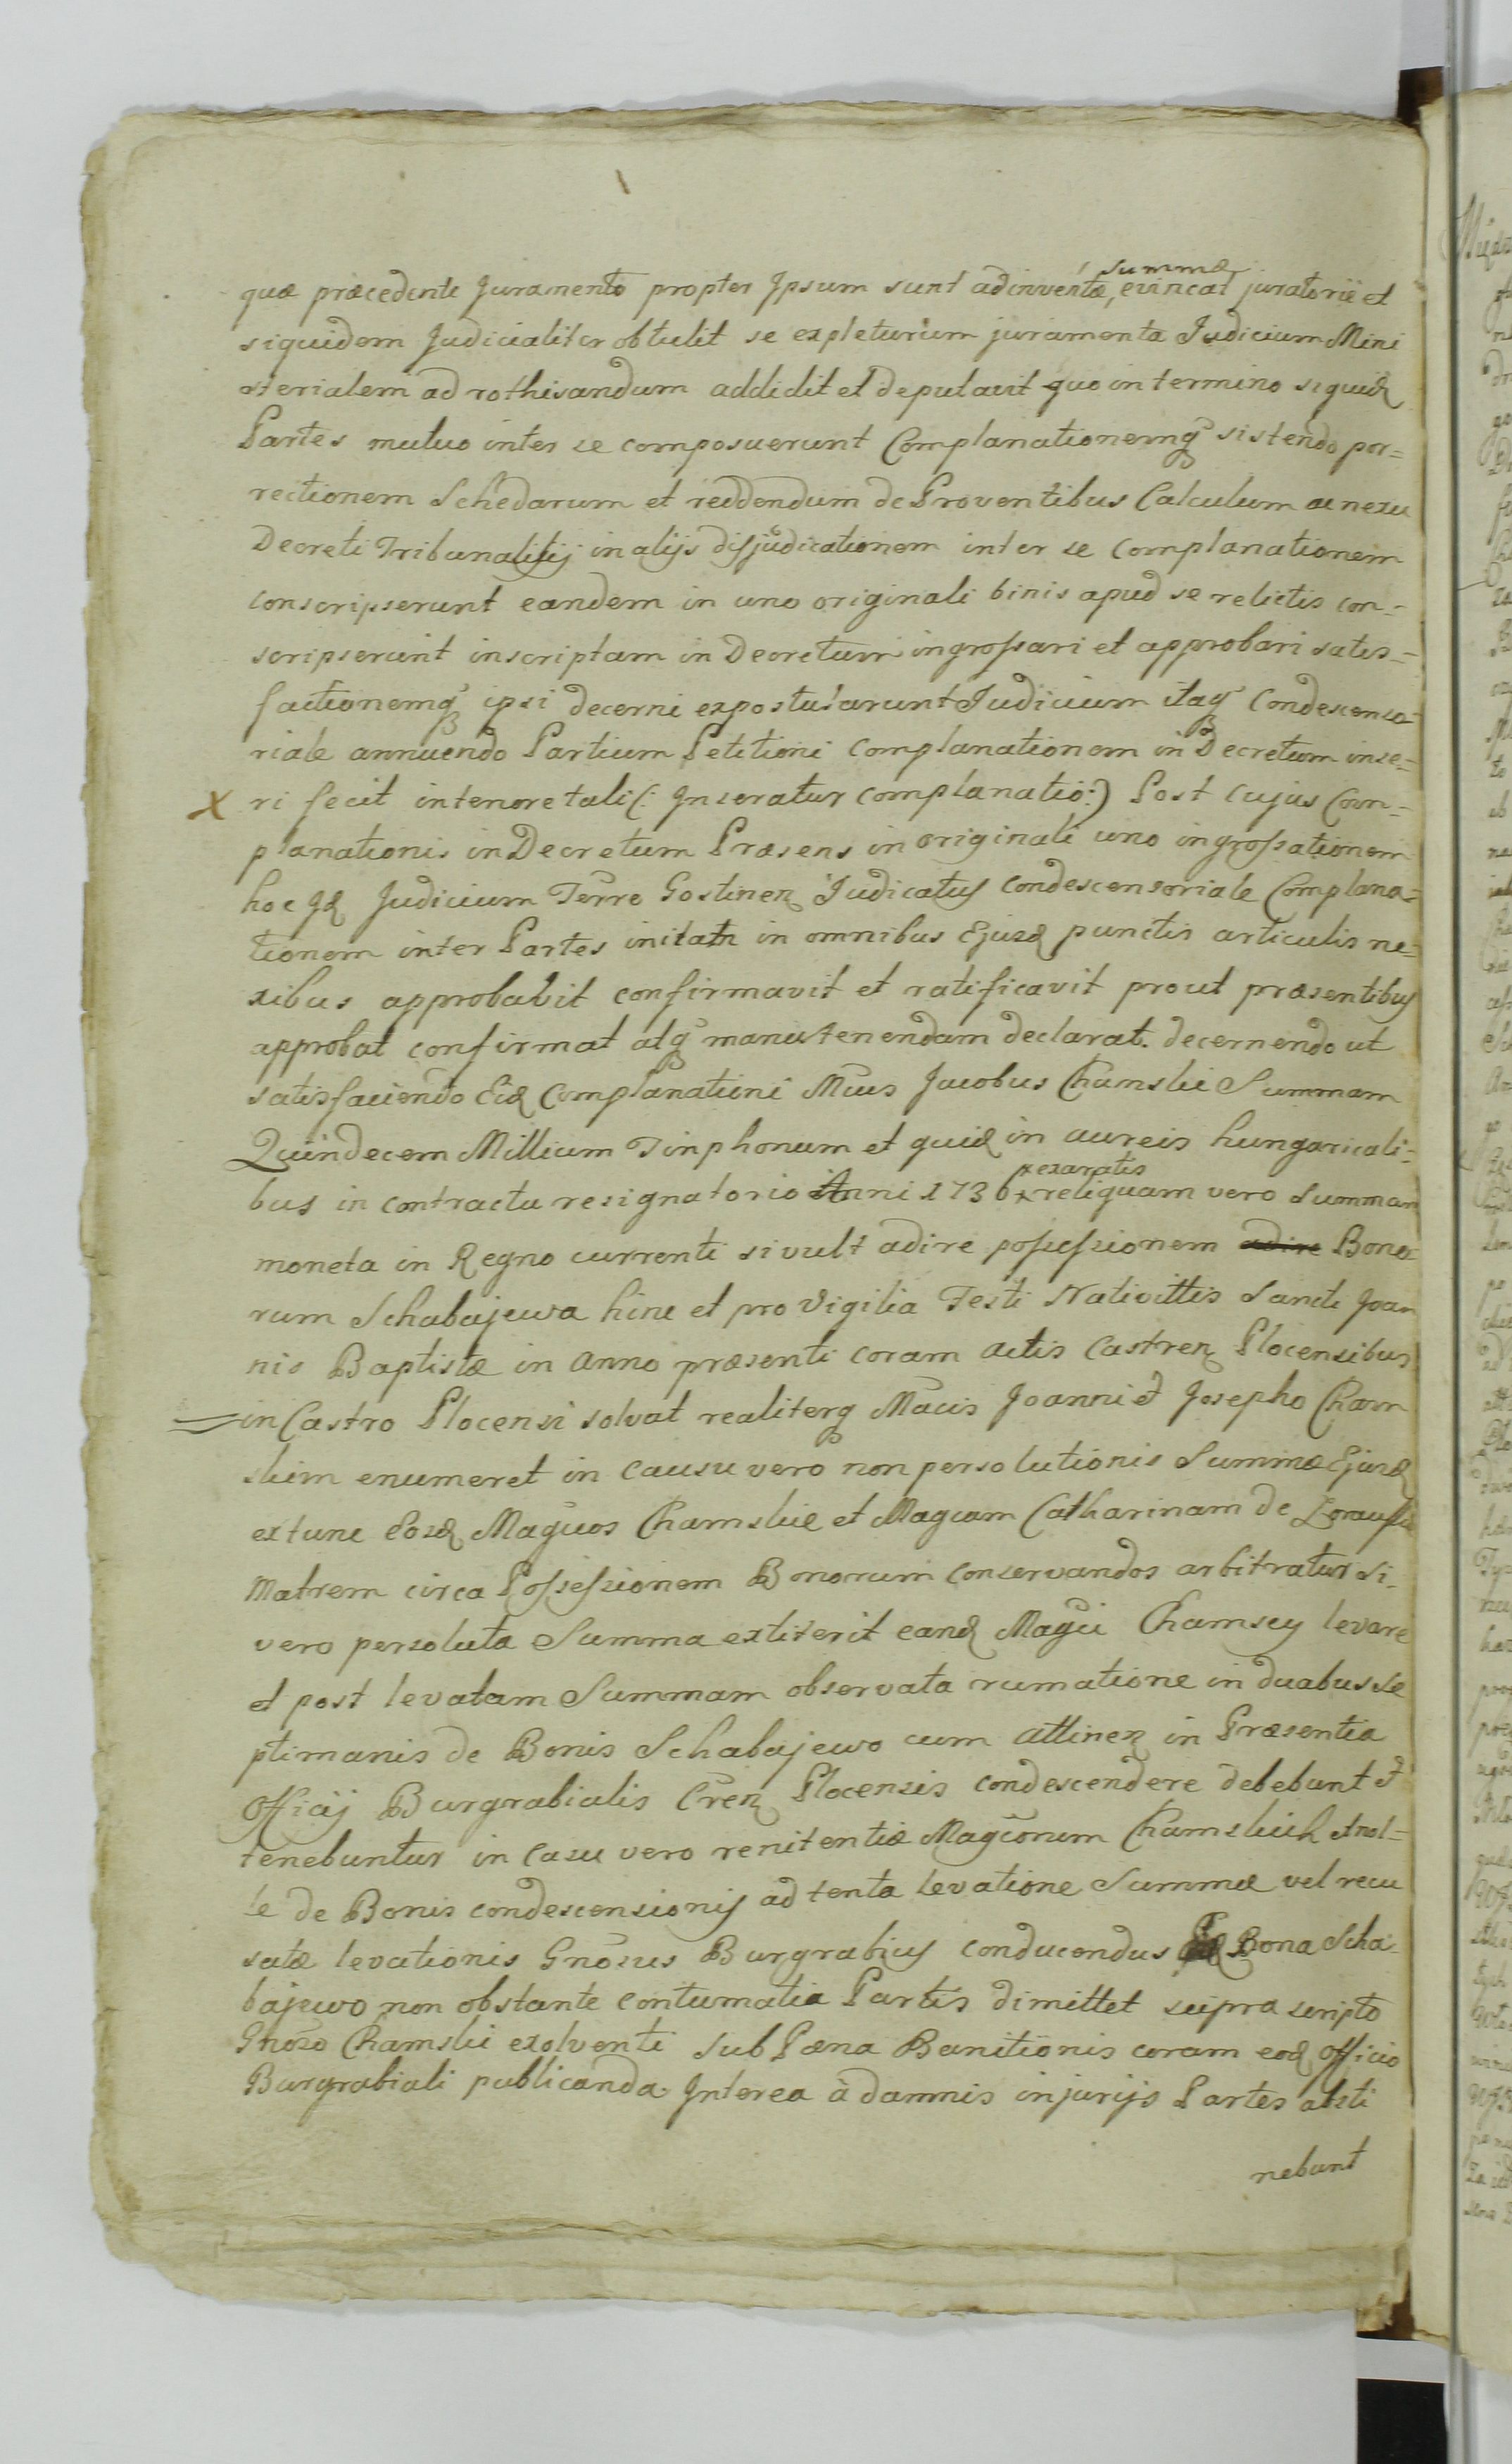 summæ
quæ præcedente Juramento propter Ipsum sunt adinventæ, evincat juratorié et
siquidem Judicialiter obtulit se expleturum juramenta Judicium Mini
sterialem ad rothisandum addidit et deputavit quo in termino siquid
Partes mutuo inter se composuerunt Complanationemq sistendo por=
rectionem Schedarum et reddendum de Proventibus Calculum ac nexu
Decreti Tribunalitij in alijs disjudicationem inter se complanationem
conscripserunt eandem in uno originali binis apud se relictis con=
scripserunt inscriptam in Decretum ingrossari et approbari satis=
factionemq ipsi decerni expostularunt Judicium itaq Condescenso
riale annuendo Partium Petitioni Complanationem in Decretum inse=
X ri fecit in tenore tali (: Inseratur complanatio :) Post cujus Com=
planationis in Decretum Præsens in originali uno ingrossationem
hoc Id Judicium Terre Gostinen Judicatus Condescensoriale Complana=
tionem inter Partes initam in omnibus Ejusd punctis articulis ne=
xibus approbabit confirmavit et ratificavit prout præsentibus
approbat confirmat atq manutenendam declarat. decernendo ut
satisfaciendo Eid Complanationi Mcus Jacobus Chamski Summam
Quindecem Millium Tinphonum et quid in aureis hungaricali=
exaratis
bus in contractu resignatorio Anni 1736 x reliquam vero Summam
moneta in Regno currenti si vult adire possessionem adire Bono
rum Schabajewa hinc et pro Vigilia Festi Nativittis Sancti Joan
nis Baptistæ in anno præsenti coram actis Castren Plocensibus
in Castro Plocensi solvat realiterq Mcis Joanni et Josepho Cham
skim enumeret in causu vero non persolutionis Summæ Ejusd
extunc Eosd Magcos Chamskie et Magcam Catharinam de
Matrem circa Possessionem Bonorum conservandos arbitratur si=
vero persoluta Summa extiterit eand Magci Chamscy levare
et post levatam Summam observata rumatione in duabus se
ptimanis de Bonis Schabajewo cum attinen in Præsentia
Officij Burgrabialis Cren Plocensis condescendere debebunt et
tenebuntur in casu vero renitentiæ Magcorum Chamskich
le de Bonis condescensionis ad tenta levatione Summæ vel recu
satæ levationis Gnosus Burgrabius conducendus Bona Scha=
bajewo non obstante contumatia Partis dimittet supra scripto
Gnoso Chamski exolventi sub Pæna Banitionis coram eod Officio
Burgrabiali publicanda Interea à damnis injurijs Partes absti
nebunt